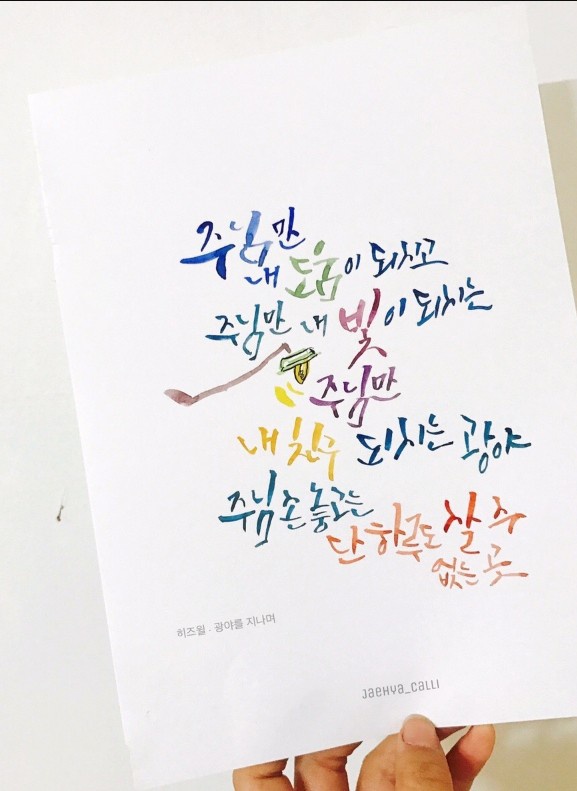 주님만
내 도움이 되시고
주님만 내 빛이 되시는
주님만
내 친구 되시는 광야
주님 손 놓고는
단 하루도 살 수
없는 곳
히즈윌 - 광야를 지나며
JaeHya_CaLLI